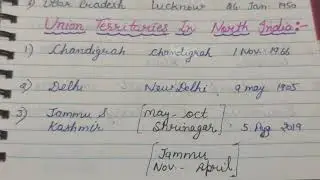 3) Uttar Pradesh Lucknow 26 Jan 1950
Union Territories In North India:-
1) Chandigrah Chandigrah 1 Nov. 1966
2) Delhi New Delhi 9 may 1905
3) Jammu & [May - Oct
Kashmir Shrinagar] 5 Aug 2019
[Jammu
Nov. - April]